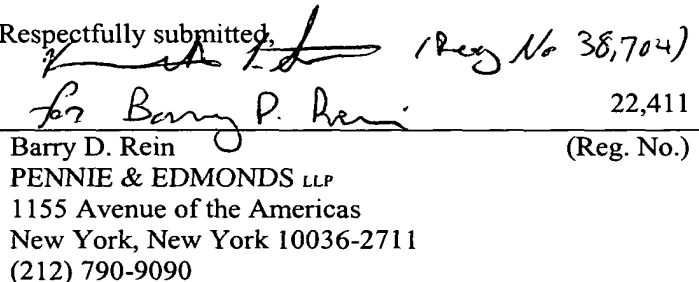 Respectfully submitted,
(Reg No 38,704)
for Barry D. Rein
22,411
Barry D. Rein (Reg. No.)
PENNIE & EDMONDS LLP
1155 Avenue of the Americas
New York, New York 10036-2711
(212) 790-9090